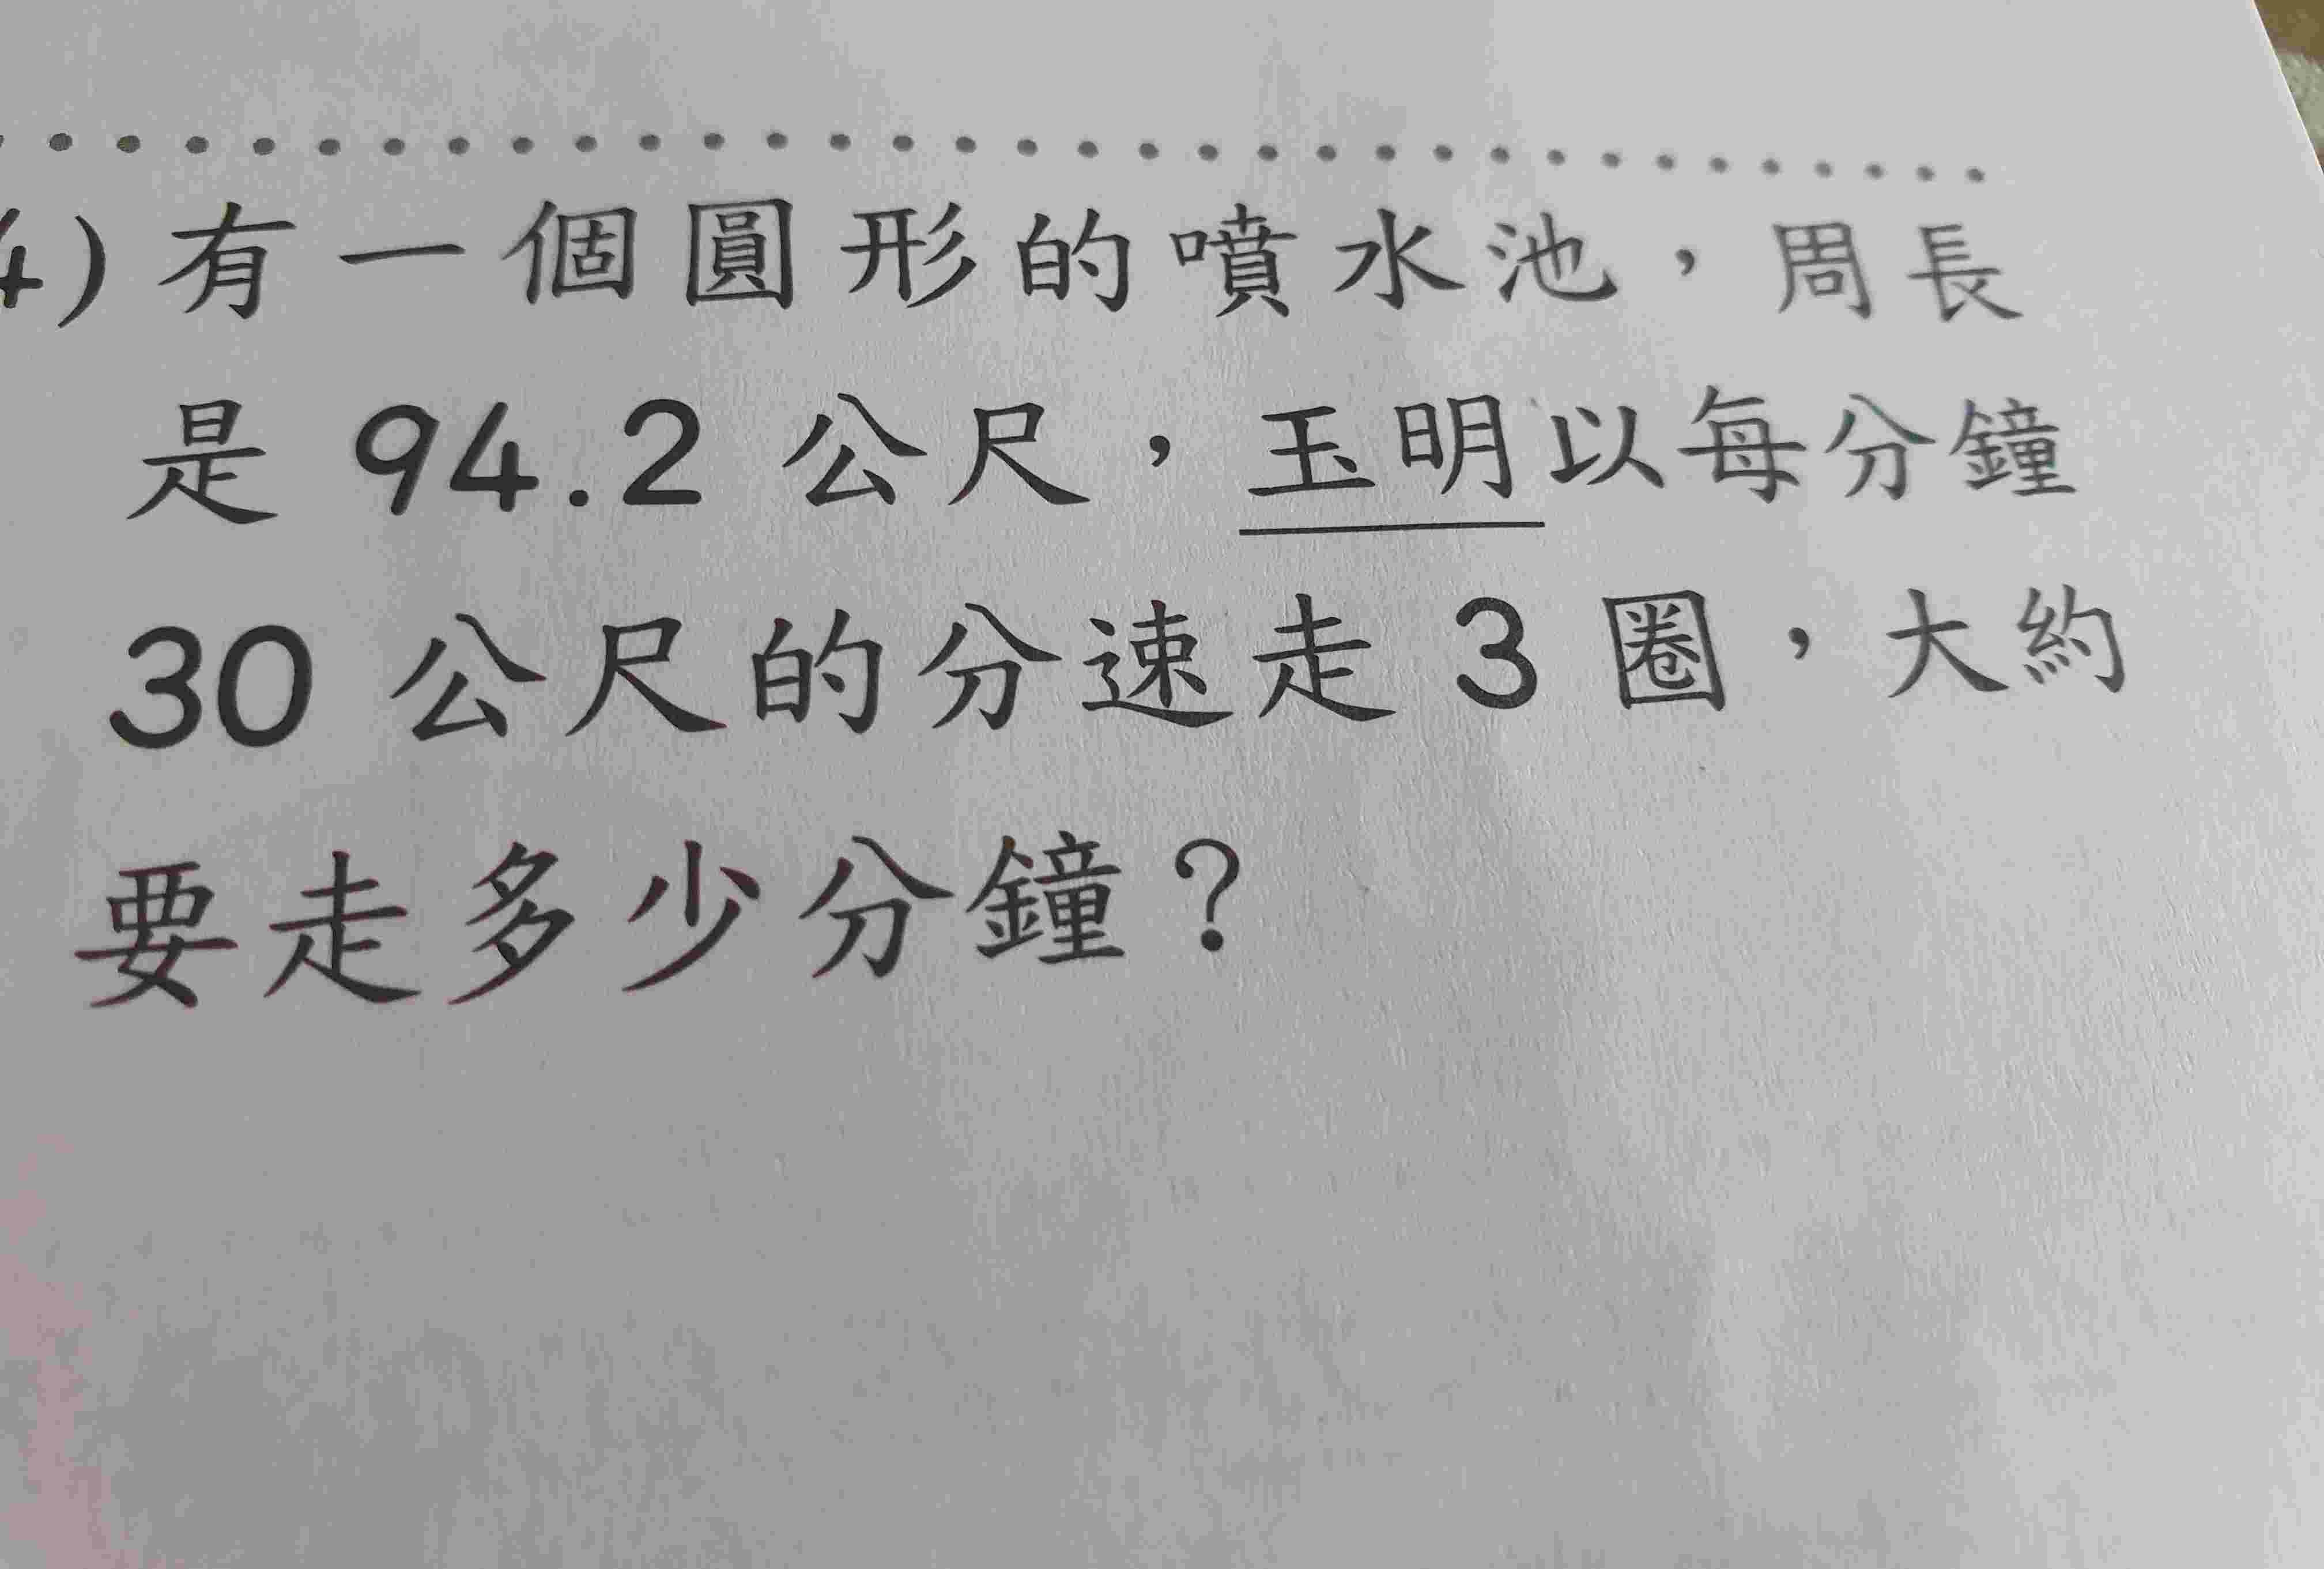 4) 有一個圓形的噴水池，周長
是 94.2 公尺，玉明以每分鐘
30 公尺的分速走 3 圈，大約
要走多少分鐘？